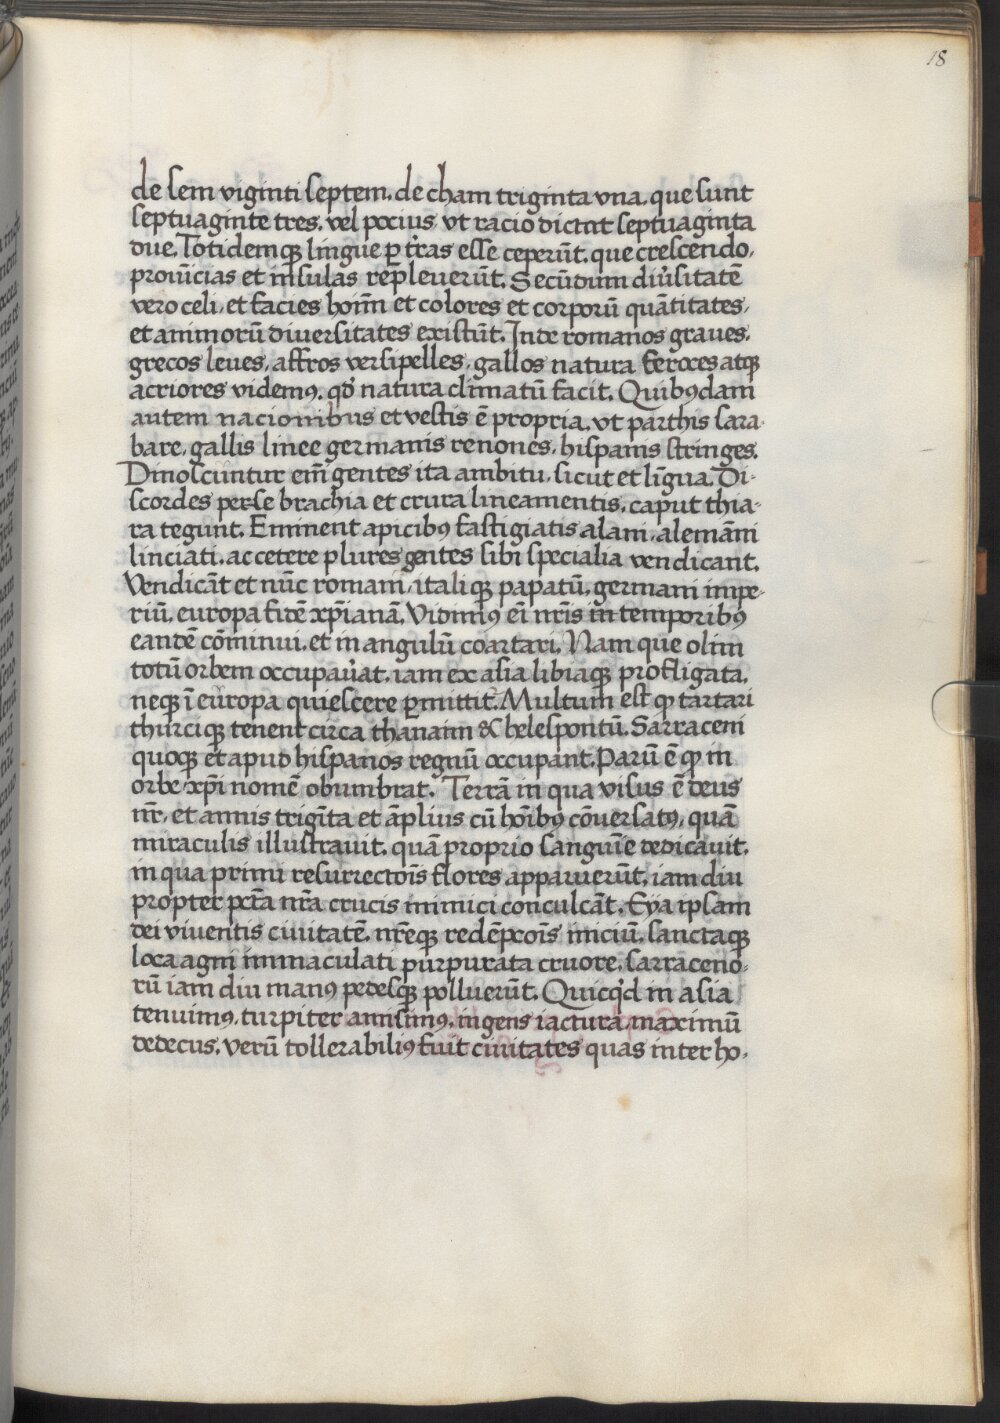 18
de sem viginti septem. de cham triginta vna. que sunt
septuaginte tres. vel pocius vt racio dictat septuaginta
due. Totidemqꝫ lingue ꝑ tras esse ceperūt. que crescendo.
prouīcias et insulas repleuerūt. Secūdum diūsitatē
vero celi. et facies hoīm et colores et corporū quātitates.
et animorū diuersitates existūt. Inde romanos graues.
grecos leues. affros versipelles. gallos natura feroces atqꝫ
acriores videmꝰ. qd̄ natura climatū facit. Quibꝰdam
autem nacionibus et vestis ē propria. vt parthis sara
bare. gallis linee germanis renones. hispanis stringes.
Dinoscuntur em̄ gentes ita ambitu. sicut et līgua. Di-
scordes perse brachia et crura lineamentis. caput thia-
ra tegunt. Eminent apicibꝰ fastigiatis alani. alemāni
linciati. ac cetere plures gentes sibi specialia vendicant.
Vendicāt et nūc romani. italiqꝫ papatū. germani impe-
riū. europa fidē xp̄ianā. Vidimꝰ eī nr̄is in temporibꝰ
eandē cōminui. et in angulū coartari. Nam que olim
totū orbem occupaūat. iam ex asia libiaqꝫ profligata.
neqꝫ ī europa quiescere ꝑmittit̄. Multum est ꝙ tartari
thurciqꝫ tenent circa thanaim & helespontū. Sarraceni
quoqꝫ et apud hispanos regnū occupant. Parū ē ꝙ in
orbe xp̄i nomē obumbrat. Terrā in qua visus ē deus
nr̄. et annis trigīta et āplius cū hoībꝰ cōuersatꝰ. quā
miraculis illustrauit. quā proprio sanguīe dedicāuit.
in qua primi resurrectoīs flores apparuerūt. iam diu
propter pctā nrā crucis inimici conculcāt. Eya ipsam
dei viuentis ciuitatē. nr̄eqꝫ redēpcoīs iniciū. sanctaqꝫ
loca agni immaculati purpurata cruore. sarraceno-
rū iam diu manꝰ pedesqꝫ polluerūt. Quicqd in asia
tenuimꝰ. turpiter amisimꝰ. ingens iactura. maximū
dedecus. verū tollerabiliꝰ fuit ciuitates quas inter ho-